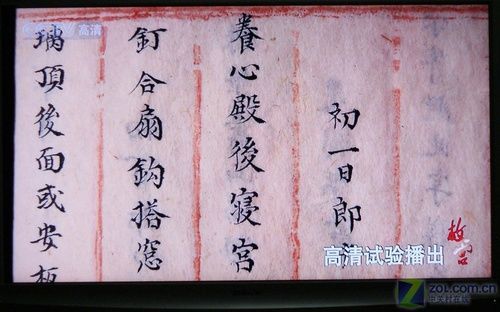 初一日郎
養心殿後寝宮
釘合扇鈎搭窓
璃頂後面或安板
高清
高清试验播出
故宫
zol.com.cn
中关村在线